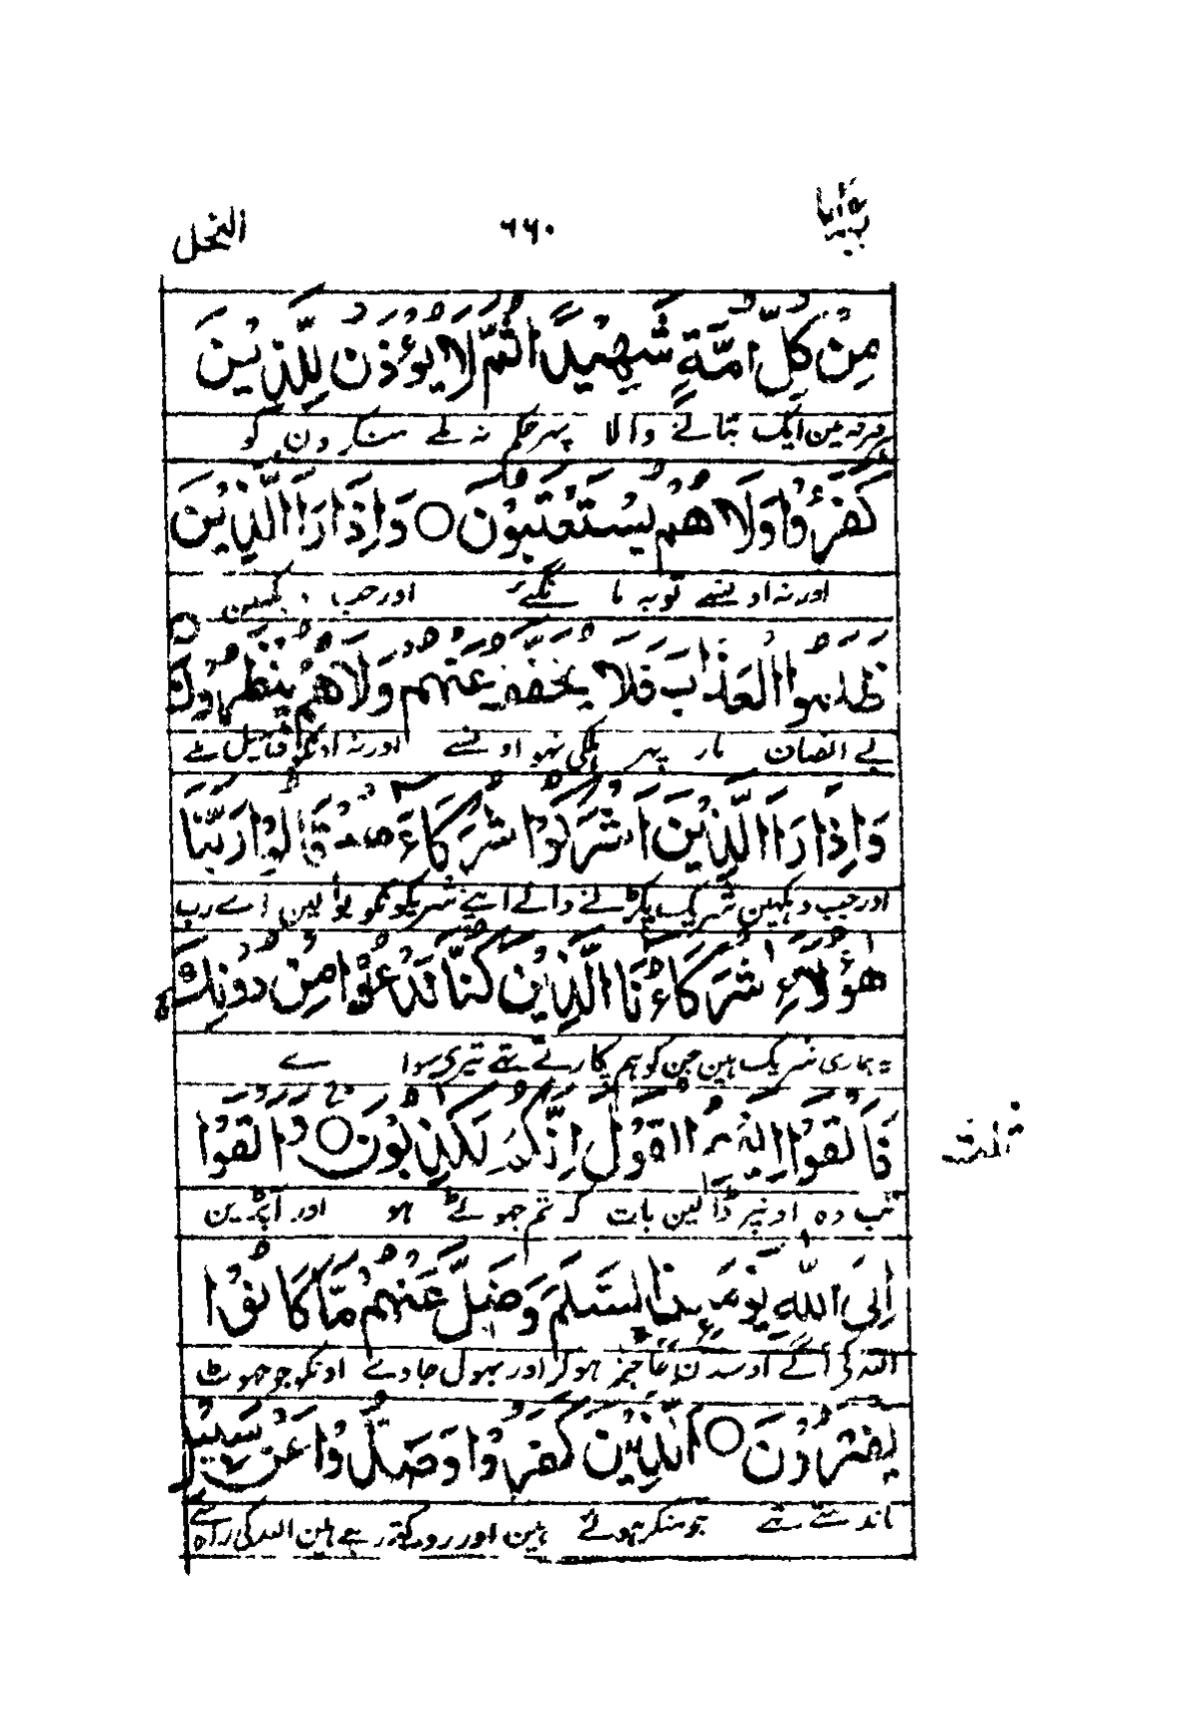 النحل ۶۶۰ ربما
مِنْ كُلِّ اُمَّةٍ شَهِيْدًا ثُمَّ لَا يُؤْذَنُ لِلَّذِيْنَ
ہر فرقہ مین ایک بتانے والا پہر حکم نہ ملے منکرون کو
كَفَرُوْا وَلَا هُمْ يُسْتَعْتَبُوْنَ ○ وَاِذَا رَاَ الَّذِيْنَ
اور نہ اونسے توبہ مانگئے اور جب دیکہین
ظَلَمُوا الْعَذَابَ فَلَا يُخَفَّفُ عَنْهُمْ وَلَا هُمْ يُنْظَرُوْنَ ○
بے انصاف مار پہر ہلکی نہو اونسے اور نہ اونکو ڈہیل ملے
وَاِذَا رَاَ الَّذِيْنَ اَشْرَكُوْا شُرَكَاءَهُمْ قَالُوْا رَبَّنَا
اور جب دیکہین شریک پکڑنے والے اپنے شریکونکو بولین اے رب
هٰؤُلَاءِ شُرَكَاؤُنَا الَّذِيْنَ كُنَّا نَدْعُوْا مِنْ دُوْنِكَ
یہ ہماری شریک ہین جن کو ہم پکارتے تہے تیری سوا ے
فَاَلْقَوْا اِلَيْهِمُ الْقَوْلَ اِنَّكُمْ لَكٰذِبُوْنَ ○ وَاَلْقَوْا
تب وہ اونپر ڈالین بات کہ تم جہوٹے ہو اور آپڑین
اِلَى اللّٰهِ يَوْمَئِذِ ِۨالسَّلَمَ وَضَلَّ عَنْهُمْ مَّا كَانُوْا
اللہ کی آگے اوسدن عاجز ہوکر اور بہول جاوے اونکو جو جہوٹ
يَفْتَرُوْنَ ○ اَلَّذِيْنَ كَفَرُوْا وَصَدُّوْا عَنْ سَبِيْلِ
باندہتے تہے جو منکر ہوئے ہین اور روکتے رہے ہین اللہ کی راہ سے